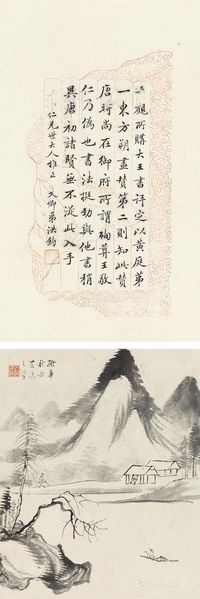 觀所購大王書評定以黃庭第
一東方朔畫贊第二則知此贊
唐時尚在御府所謂殉葬王敬
仁乃偽也書法挺勁與他書稍
異唐初諸賢無不從此入手
仁先世大人雅正 文卿弟洪鈞